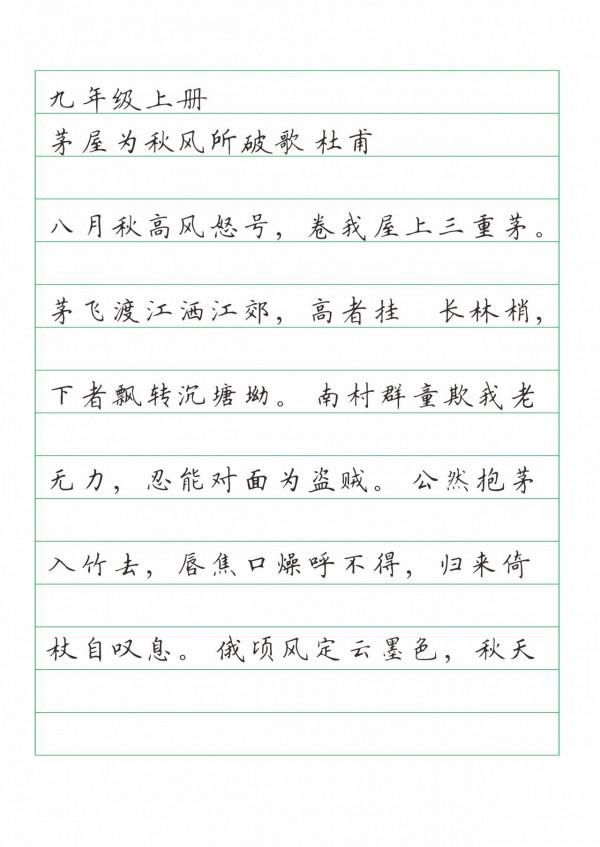 九年级上册
茅屋为秋风所破歌 杜甫
八月秋高风怒号，卷我屋上三重茅。
茅飞渡江洒江郊，高者挂 长林梢，
下者飘转沉塘坳。 南村群童欺我老
无力，忍能对面为盗贼。 公然抱茅
入竹去，唇焦口燥呼不得，归来倚
杖自叹息。 俄顷风定云墨色，秋天